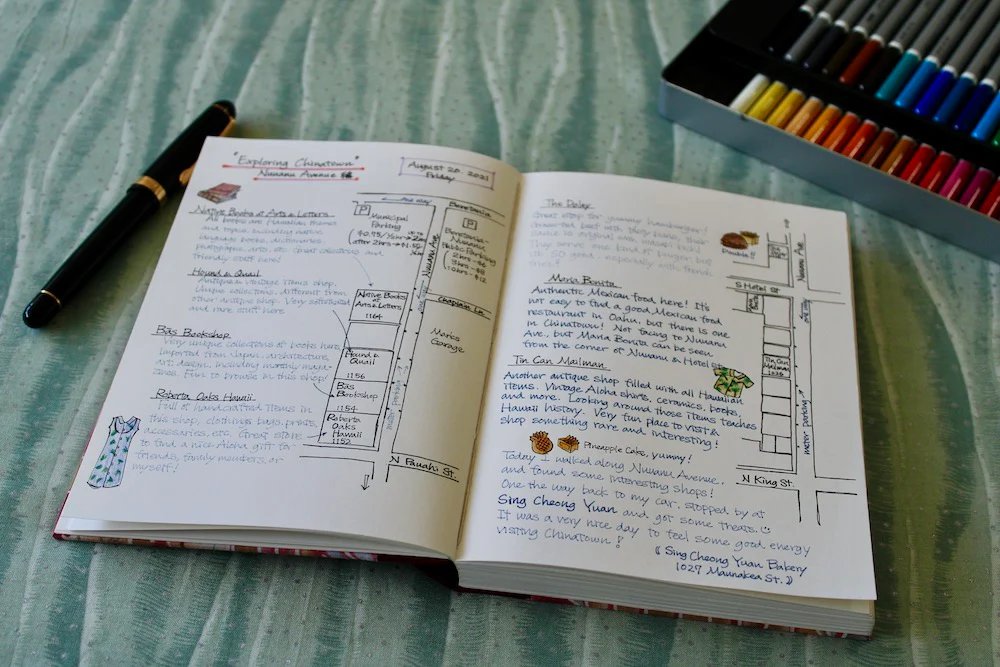 "Exploring Chinatown"
Nuuanu Avenue
August 20, 2021
Friday
Native Books at Arts & Letters
All books are Hawaiian themes
and topic, including native
language books, dictionaries,
Great collections and
friendly staff here!
Hound & Quail
Antique & vintage items shop.
Unique collections, different from
other antique shop. Very
and rare stuff here.
Bās Bookshop
Very unique collections of books here,
imported from Japan, architecture,
art, design, including monthly maga-
zines. Fun to browse in this shop!
Roberta Oaks Hawaii
Full of handcrafted items in
this shop, clothings, bags, prints,
accessaries, etc. Great store
to find a nice Aloha gift for
friends, family members, or
myself!
one way
Beretania
P
Municipal
Parking
after 2hrs - $1.50
P
Beretania-
Nuuanu
Public Parking
Nuuanu Ave
Chaplain Ln.
Native Books
at Arts & Letters
1164
Hound &
Quail
1156
Bās
Bookshop
1154
Roberta
Oaks
Hawaii
1152
Marks
Garage
N Pauahi St.
The Daley
Great stop for yummy hamburger!
They serve one kind of burger, but
it's SO good, especially with french
fries!
Double!!
Maria Bonita
Authentic Mexican food here! It's
not easy to find a good Mexican food
restaurant in Oahu, but there is one
in Chinatown! Not facing to Nuuanu
Ave., but Maria Bonita can be seen
from the corner of Nuuanu & Hotel
Tin Can Mailman
Another antique shop filled with all Hawaiian
items. Vintage Aloha shirts, ceramics, books,
and more. Looking around those items teaches
Hawaii history. Very fun place to visit &
shop something rare and interesting!
Pineapple Cake, yummy!
Today I walked along Nuuanu Avenue,
and found some interesting shops!
One the way back to my car, stopped by at
Sing Cheong Yuan and got some treats.
It was a very nice day to feel some good energy
visiting Chinatown!
Sing Cheong Yuan Bakery
1027 Maunakea St.
Nuuanu Ave.
S Hotel St
one way
Tin Can
Mailman
1026
meter parking
N King St.